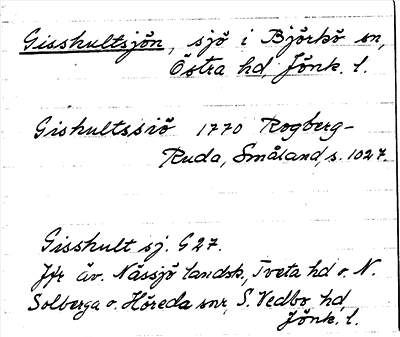 Gisshultsjön, sjö i Björkö sn,
Östra hd, Jönk. l.
Gishultssiö 1770 Rogberg-
Ruda, Småland, s. 1027.
Gisshult sj. G 27.
Jfr äv. Nässjö landsk, Tveta hd o. N.
Solberga o. Höreda snr, S. Vedbo hd,
Jönk. l.